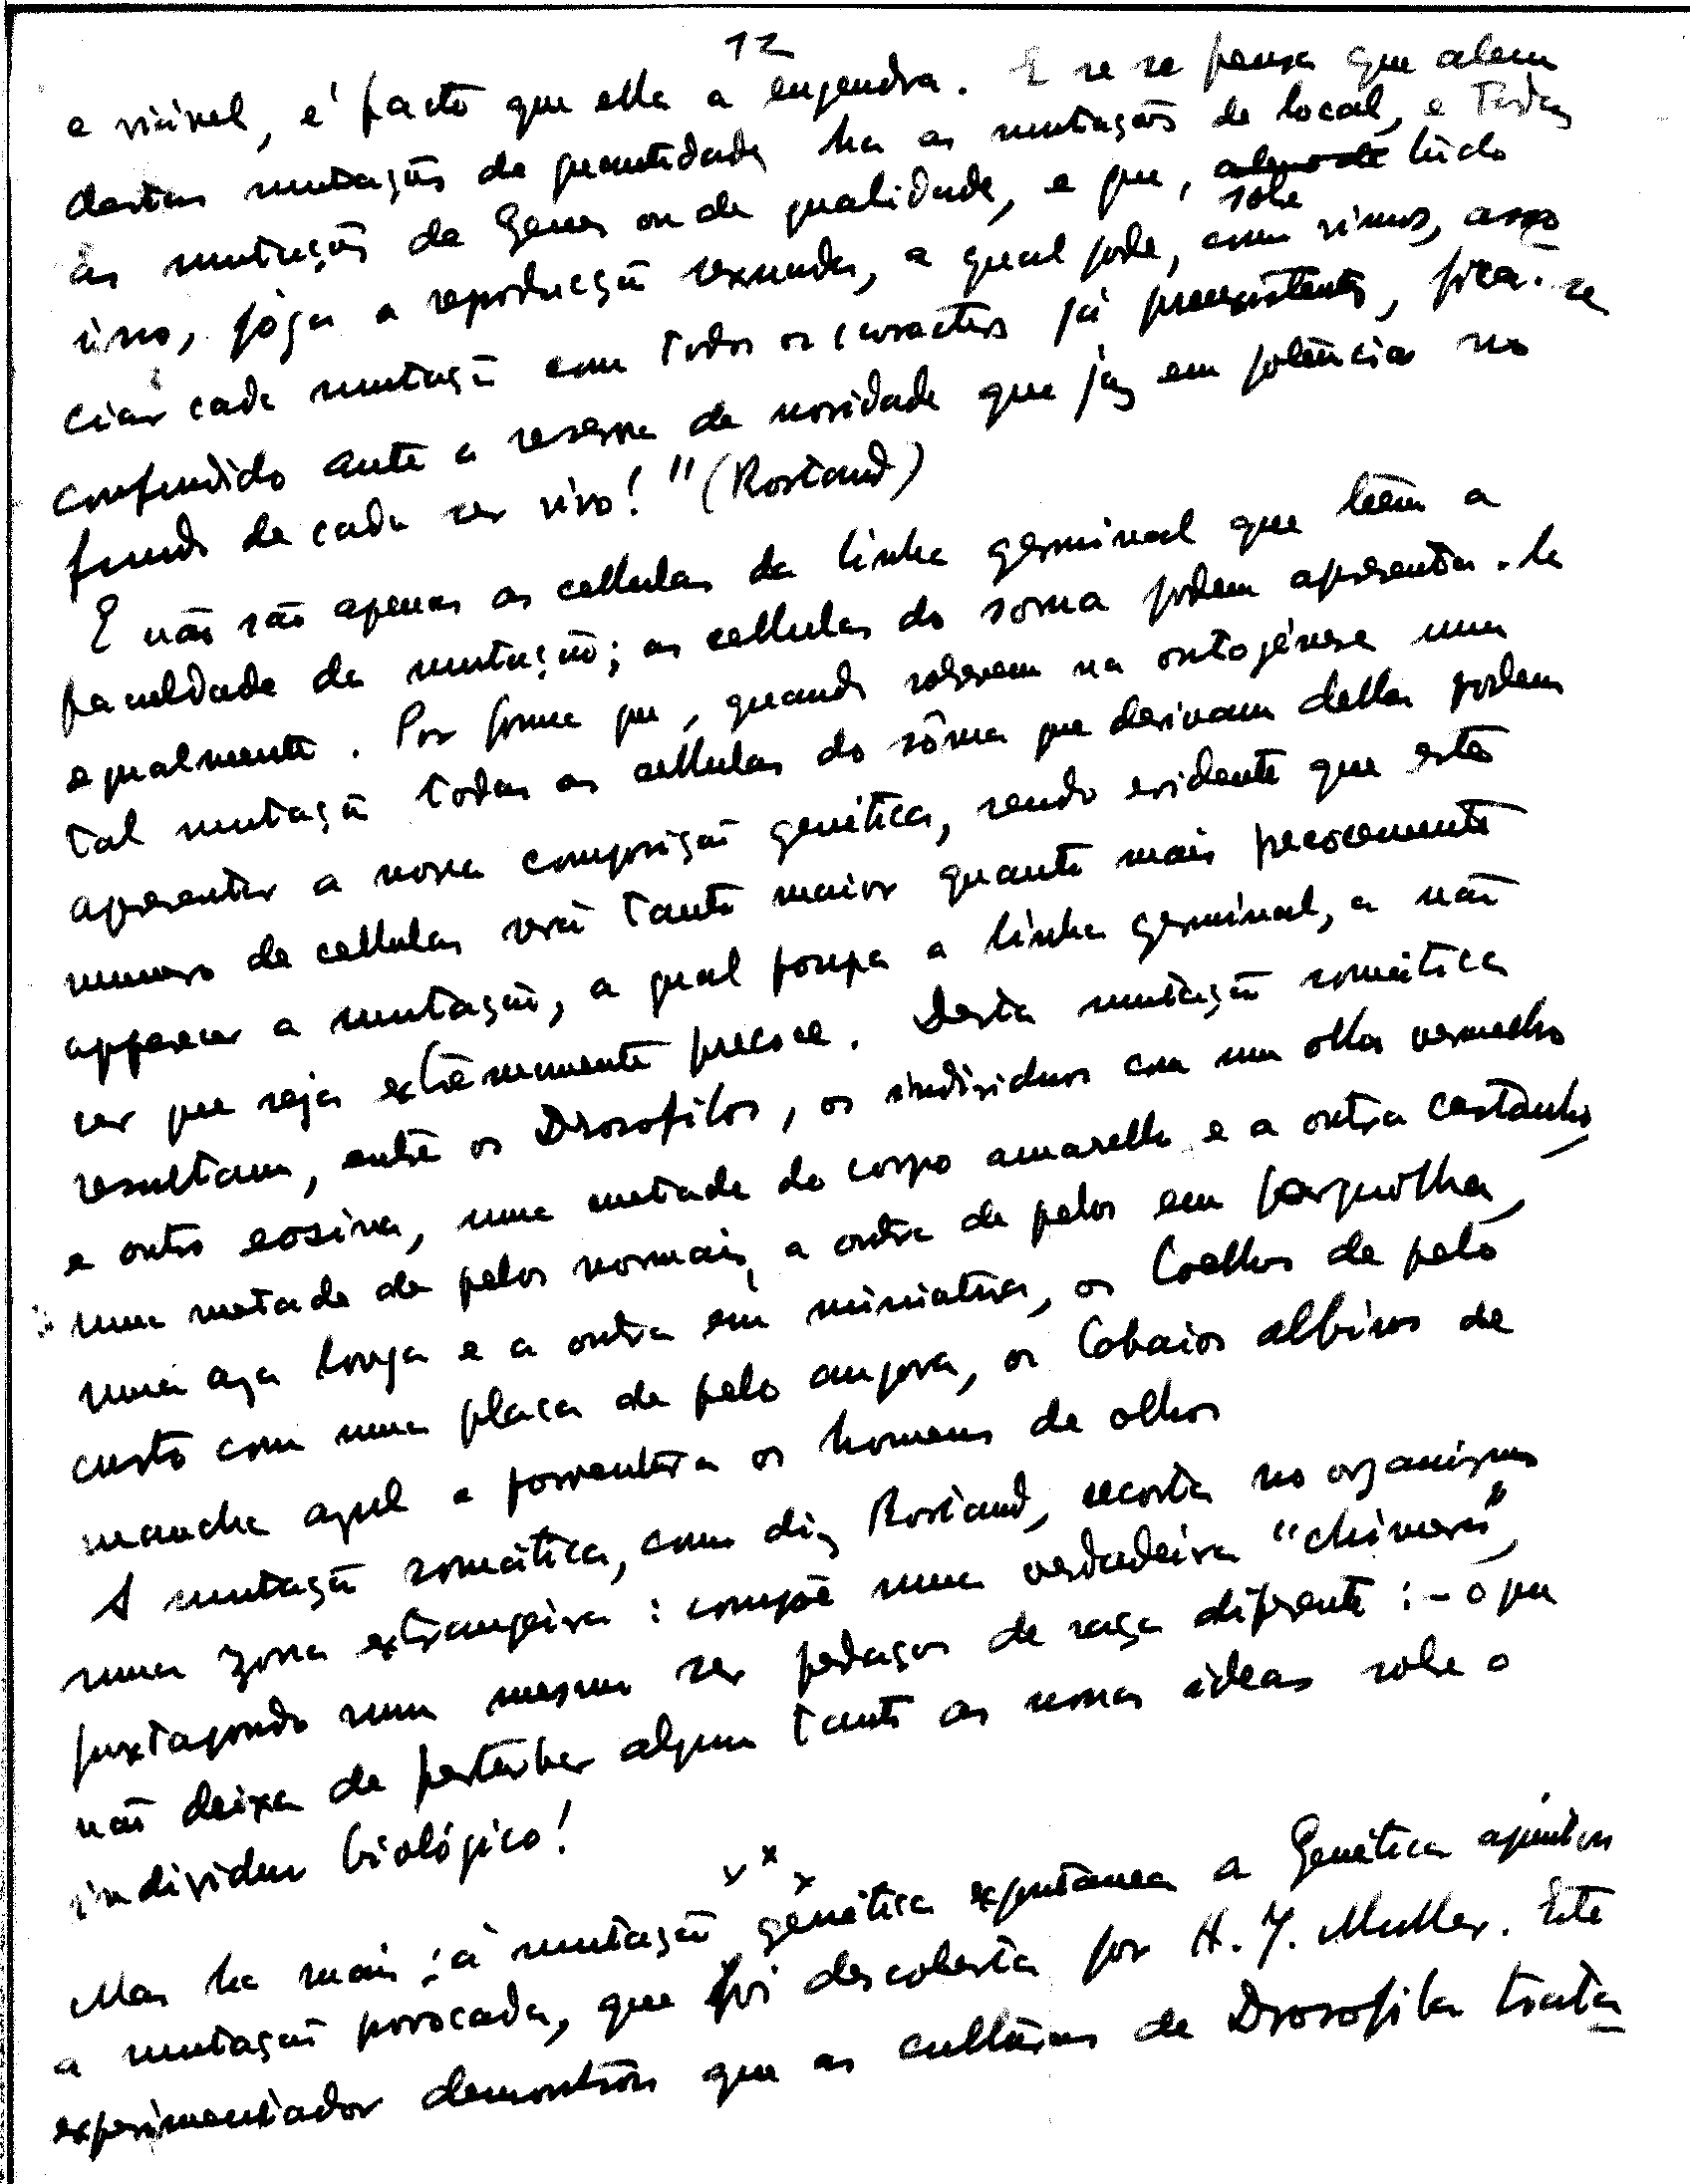 12
e visivel, é facto que ella a engendra. E se se pensa que alem
destas mutações de quantidade ha as mutações de local, e todas
as mutações de Genes ou de qualidade, e que, sobre tudo
isso, joga a reproducção sexuada, a qual pode, como vimos, asso
ciar cada mutação com todos os caracteres já preexistentes, fica-se
confundido ante a reserva de novidade que jaz em potência no
fundo de cada ser vivo!" (Rostand)
E não são apenas as cellulas da linha germinal que teem a
faculdade da mutação; as cellulas do soma podem apresenta-la
egualmente. Por forma que, quando sobrevem na ontogénese uma
tal mutação todas as cellulas do sôma que derivam della podem
apresentar a nova composição genética, sendo evidente que este
numero de cellulas será tanto maior quanto mais precocemente
apparecer a mutação, a qual poupa a linha germinal, a não
ser que seja extremamente precoce. Desta mutação somática
resultam, entre os Drosofilos, os individuos com um olho vermelho
e outro eosina, uma metade do corpo amarella e a outra castanha,
uma metade de pelos normais, a outra de pelos em forquilha,
uma aza longa e a outra em miniatura, os Coelhos de pelo
curto com uma placa de pelo angora, os Cobaios albinos de
mancha azul e porventura os homens de olhos
A mutação somática, como diz Rostand, recorta no organismo
uma zona extrangeira: compõe uma verdadeira "chimera",
juxtapondo num mesmo ser pedaços de raça diferente: - o que
não deixa de perturbar algum tanto as nossas ideas sobre o
individuo biológico!
x x x
Mas ha mais: á mutação genética espontanea a Genética ajuntou
a mutação provocada, que foi descoberta por H. J. Muller. Este
experimentador demonstrou que as culturas de Drosofila trata